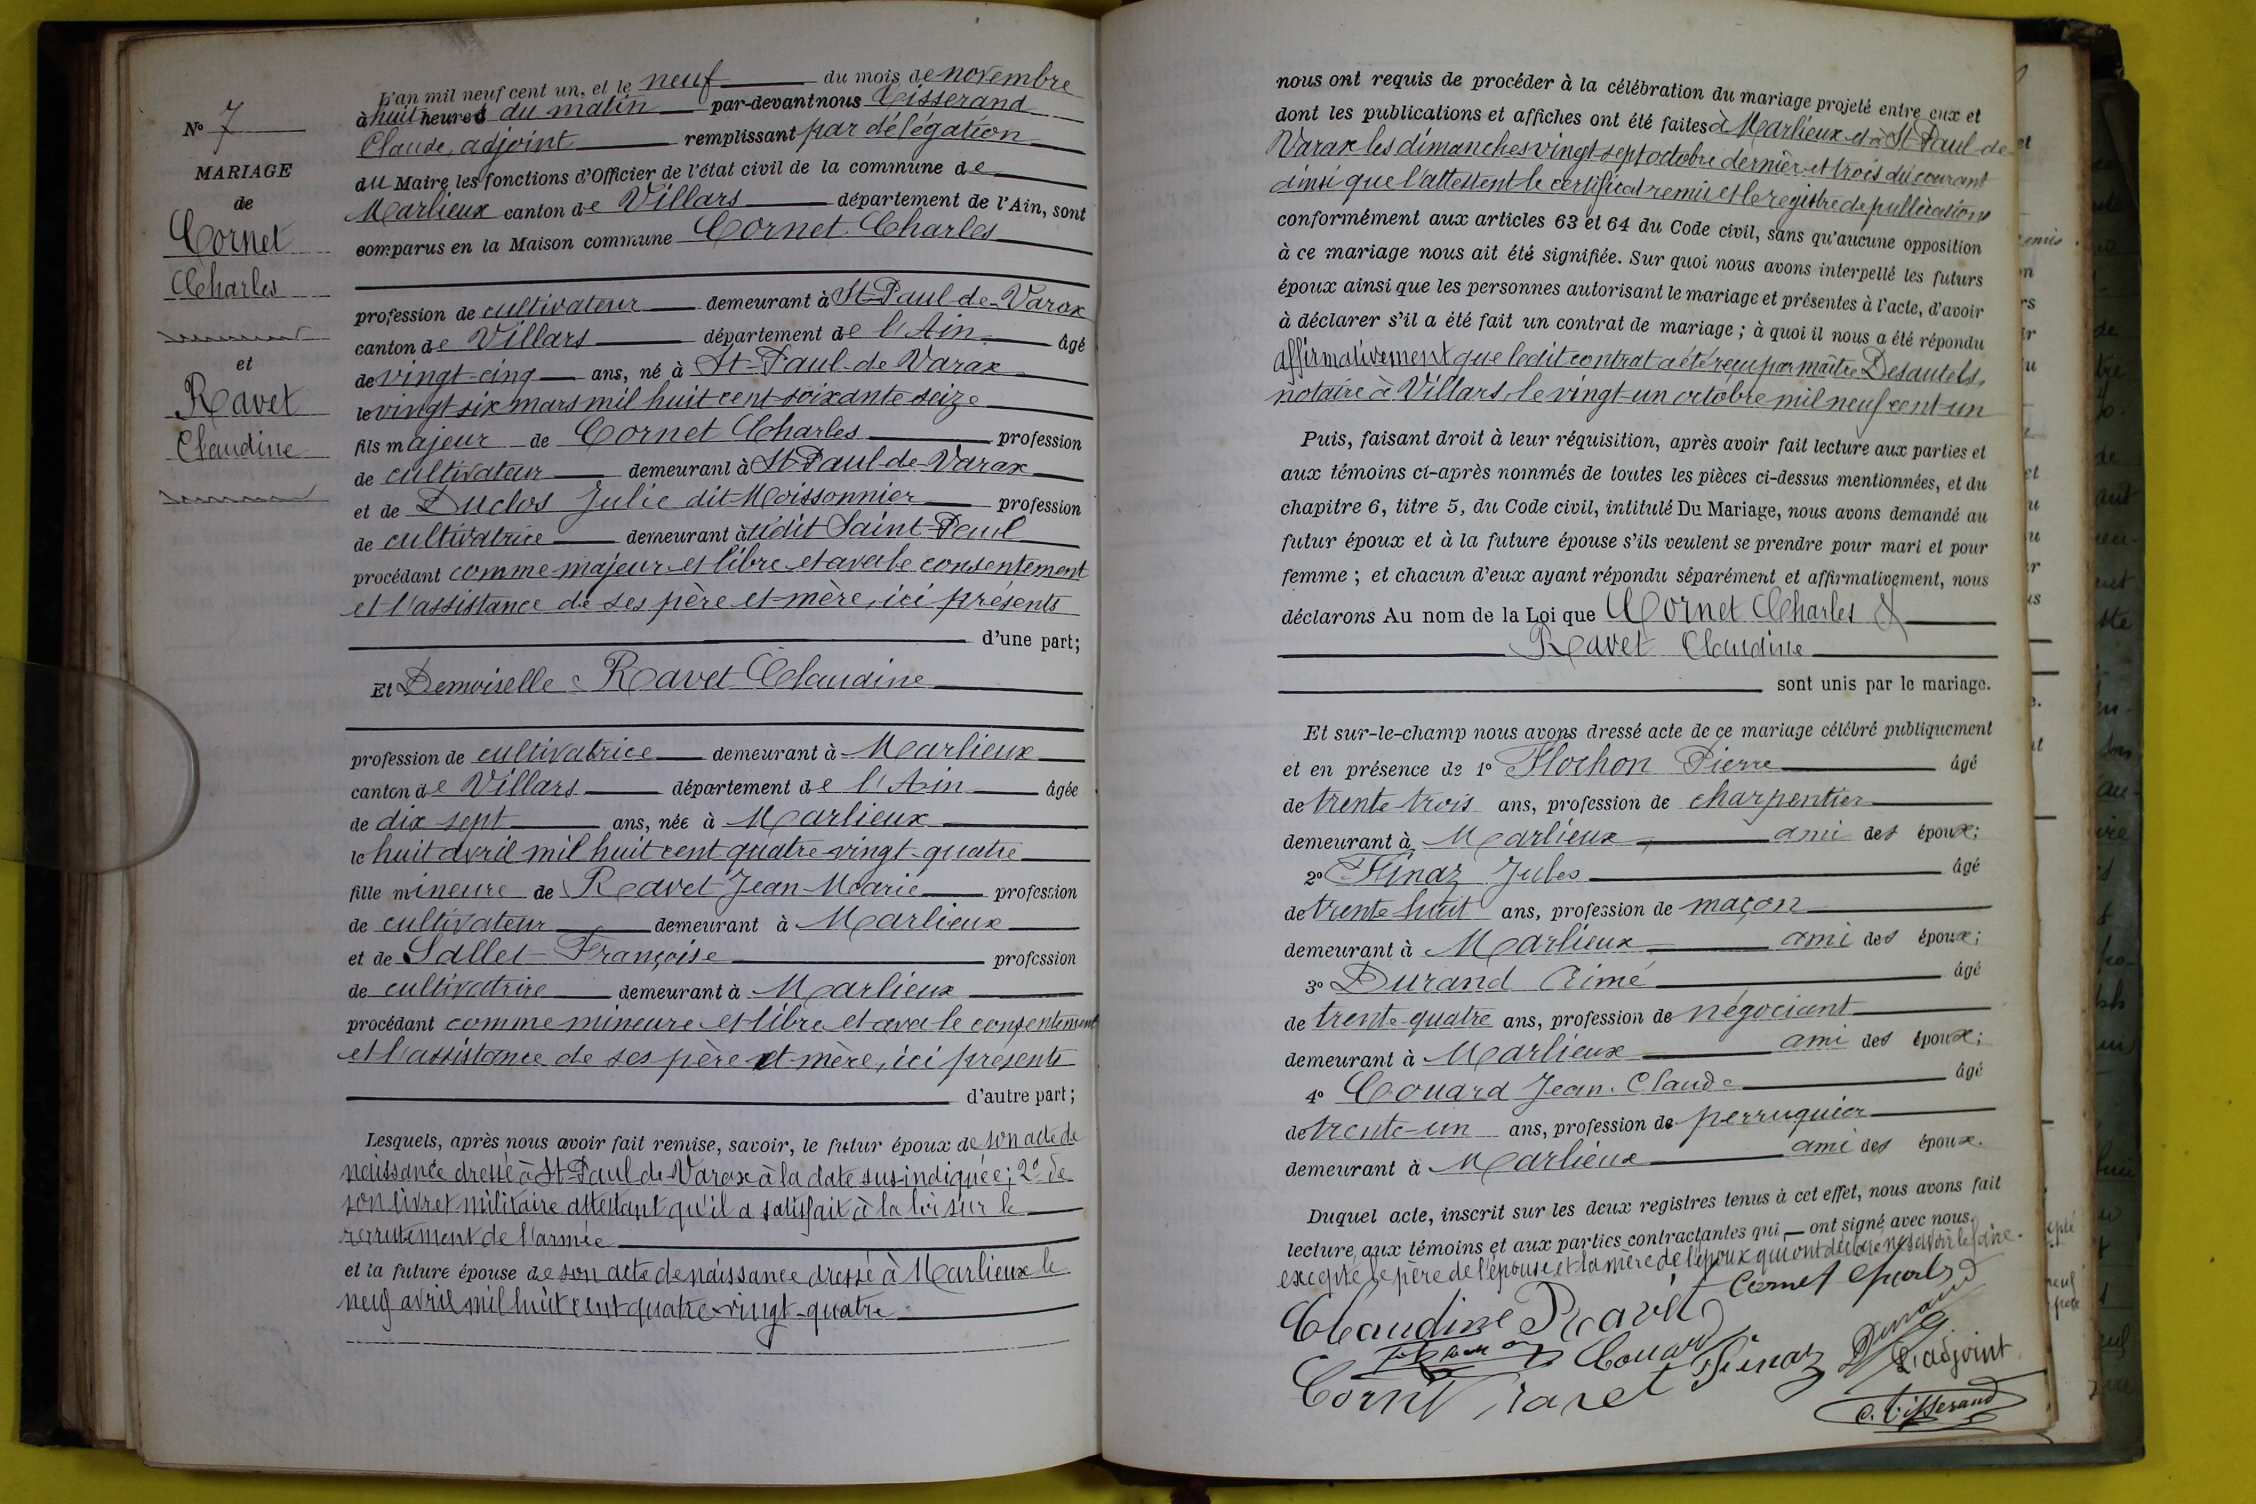 N° 7
MARIAGE
de
Cornet
Charles
et
Ravet
Claudine
L'an mil neuf cent un, et le neuf du mois de novembre
à huit heures du matin par-devant nous Tisserand
Claude, adjoint remplissant par délégation
du Maire les fonctions d'Officier de l'état civil de la commune de
Marlieux canton de Villars département de l'Ain, sont
comparus en la Maison commune Cornet Charles
profession de cultivateur demeurant à St-Paul-de-Varax
canton de Villars département de l'Ain âgé
de vingt-cinq ans, né à St-Paul-de-Varax
le vingt six mars mil huit cent soixante seize
fils majeur de Cornet Charles profession
de cultivateur demeurant à St Paul-de-Varax
et de Duclos Julie dit Moissonnier profession
de cultivatrice demeurant à udit Saint-Paul
procédant comme majeur et libre et avec le consentement
et l'assistance de ses père et mère, ici présents
d'une part;
Et Demoiselle Ravet Claudine
profession de cultivatrice demeurant à Marlieux
canton de Villars département de l'Ain âgée
de dix sept ans, née à Marlieux
le huit avril mil huit cent quatre-vingt-quatre
fille mineure de Ravet Jean-Marie profession
de cultivateur demeurant à Marlieux
et de Sallet Françoise profession
de cultivatrice demeurant à Marlieux
procédant comme mineure et libre et avec le consentement
et l'assistance de ses père et mère, ici présents
d'autre part;
Lesquels, après nous avoir fait remise, savoir, le futur époux de son acte de
naissance dressé à St-Paul-de-Varax à la date sus-indiquée; 2° de
son livret militaire attestant qu'il a satisfait à la loi sur le
recrutement de l'armée
et la future épouse de son acte de naissance dressé à Marlieux le
neuf avril mil huit cent quatre-vingt-quatre
nous ont requis de procéder à la célébration du mariage projeté entre eux et
dont les publications et affiches ont été faites à Marlieux et à St Paul-de-
Varax les dimanches vingt-sept octobre dernier et trois du courant
ainsi que l'attestent le certificat remis et le registre de publications
conformément aux articles 63 et 64 du Code civil, sans qu'aucune opposition
à ce mariage nous ait été signifiée. Sur quoi nous avons interpellé les futurs
époux ainsi que les personnes autorisant le mariage et présentes à l'acte, d'avoir
à déclarer s'il a été fait un contrat de mariage; à quoi il nous a été répondu
affirmativement que ledit contrat a été reçu par maître Desautels,
notaire à Villars, le vingt-un octobre mil neuf cent un
Puis, faisant droit à leur réquisition, après avoir fait lecture aux parties et
aux témoins ci-après nommés de toutes les pièces ci-dessus mentionnées, et du
chapitre 6, titre 5, du Code civil, intitulé Du Mariage, nous avons demandé au
futur époux et à la future épouse s'ils veulent se prendre pour mari et pour
femme; et chacun d'eux ayant répondu séparément et affirmativement, nous
déclarons Au nom de la Loi que Cornet Charles &
Ravet Claudine
sont unis par le mariage.
Et sur-le-champ nous avons dressé acte de ce mariage célébré publiquement
et en présence de 1° Flochon Pierre âgé
de trente-trois ans, profession de charpentier
demeurant à Marlieux ami des époux;
2° Finaz Jules âgé
de trente huit ans, profession de maçon
demeurant à Marlieux ami des époux;
3° Durand Aimé âgé
de trente-quatre ans, profession de négociant
demeurant à Marlieux ami des époux;
4° Couard Jean-Claude âgé
de trente-un ans, profession de perruquier
demeurant à Marlieux ami des époux.
Duquel acte, inscrit sur les deux registres tenus à cet effet, nous avons fait
lecture aux témoins et aux parties contractantes qui ont signé avec nous,
excepté le père de l'épouse et la mère de l'époux qui ont déclaré ne savoir le faire.
Claudine Ravet Cornet Charles
Couard Finaz Durand L'adjoint
Cornet Ravet
C. Tisserand